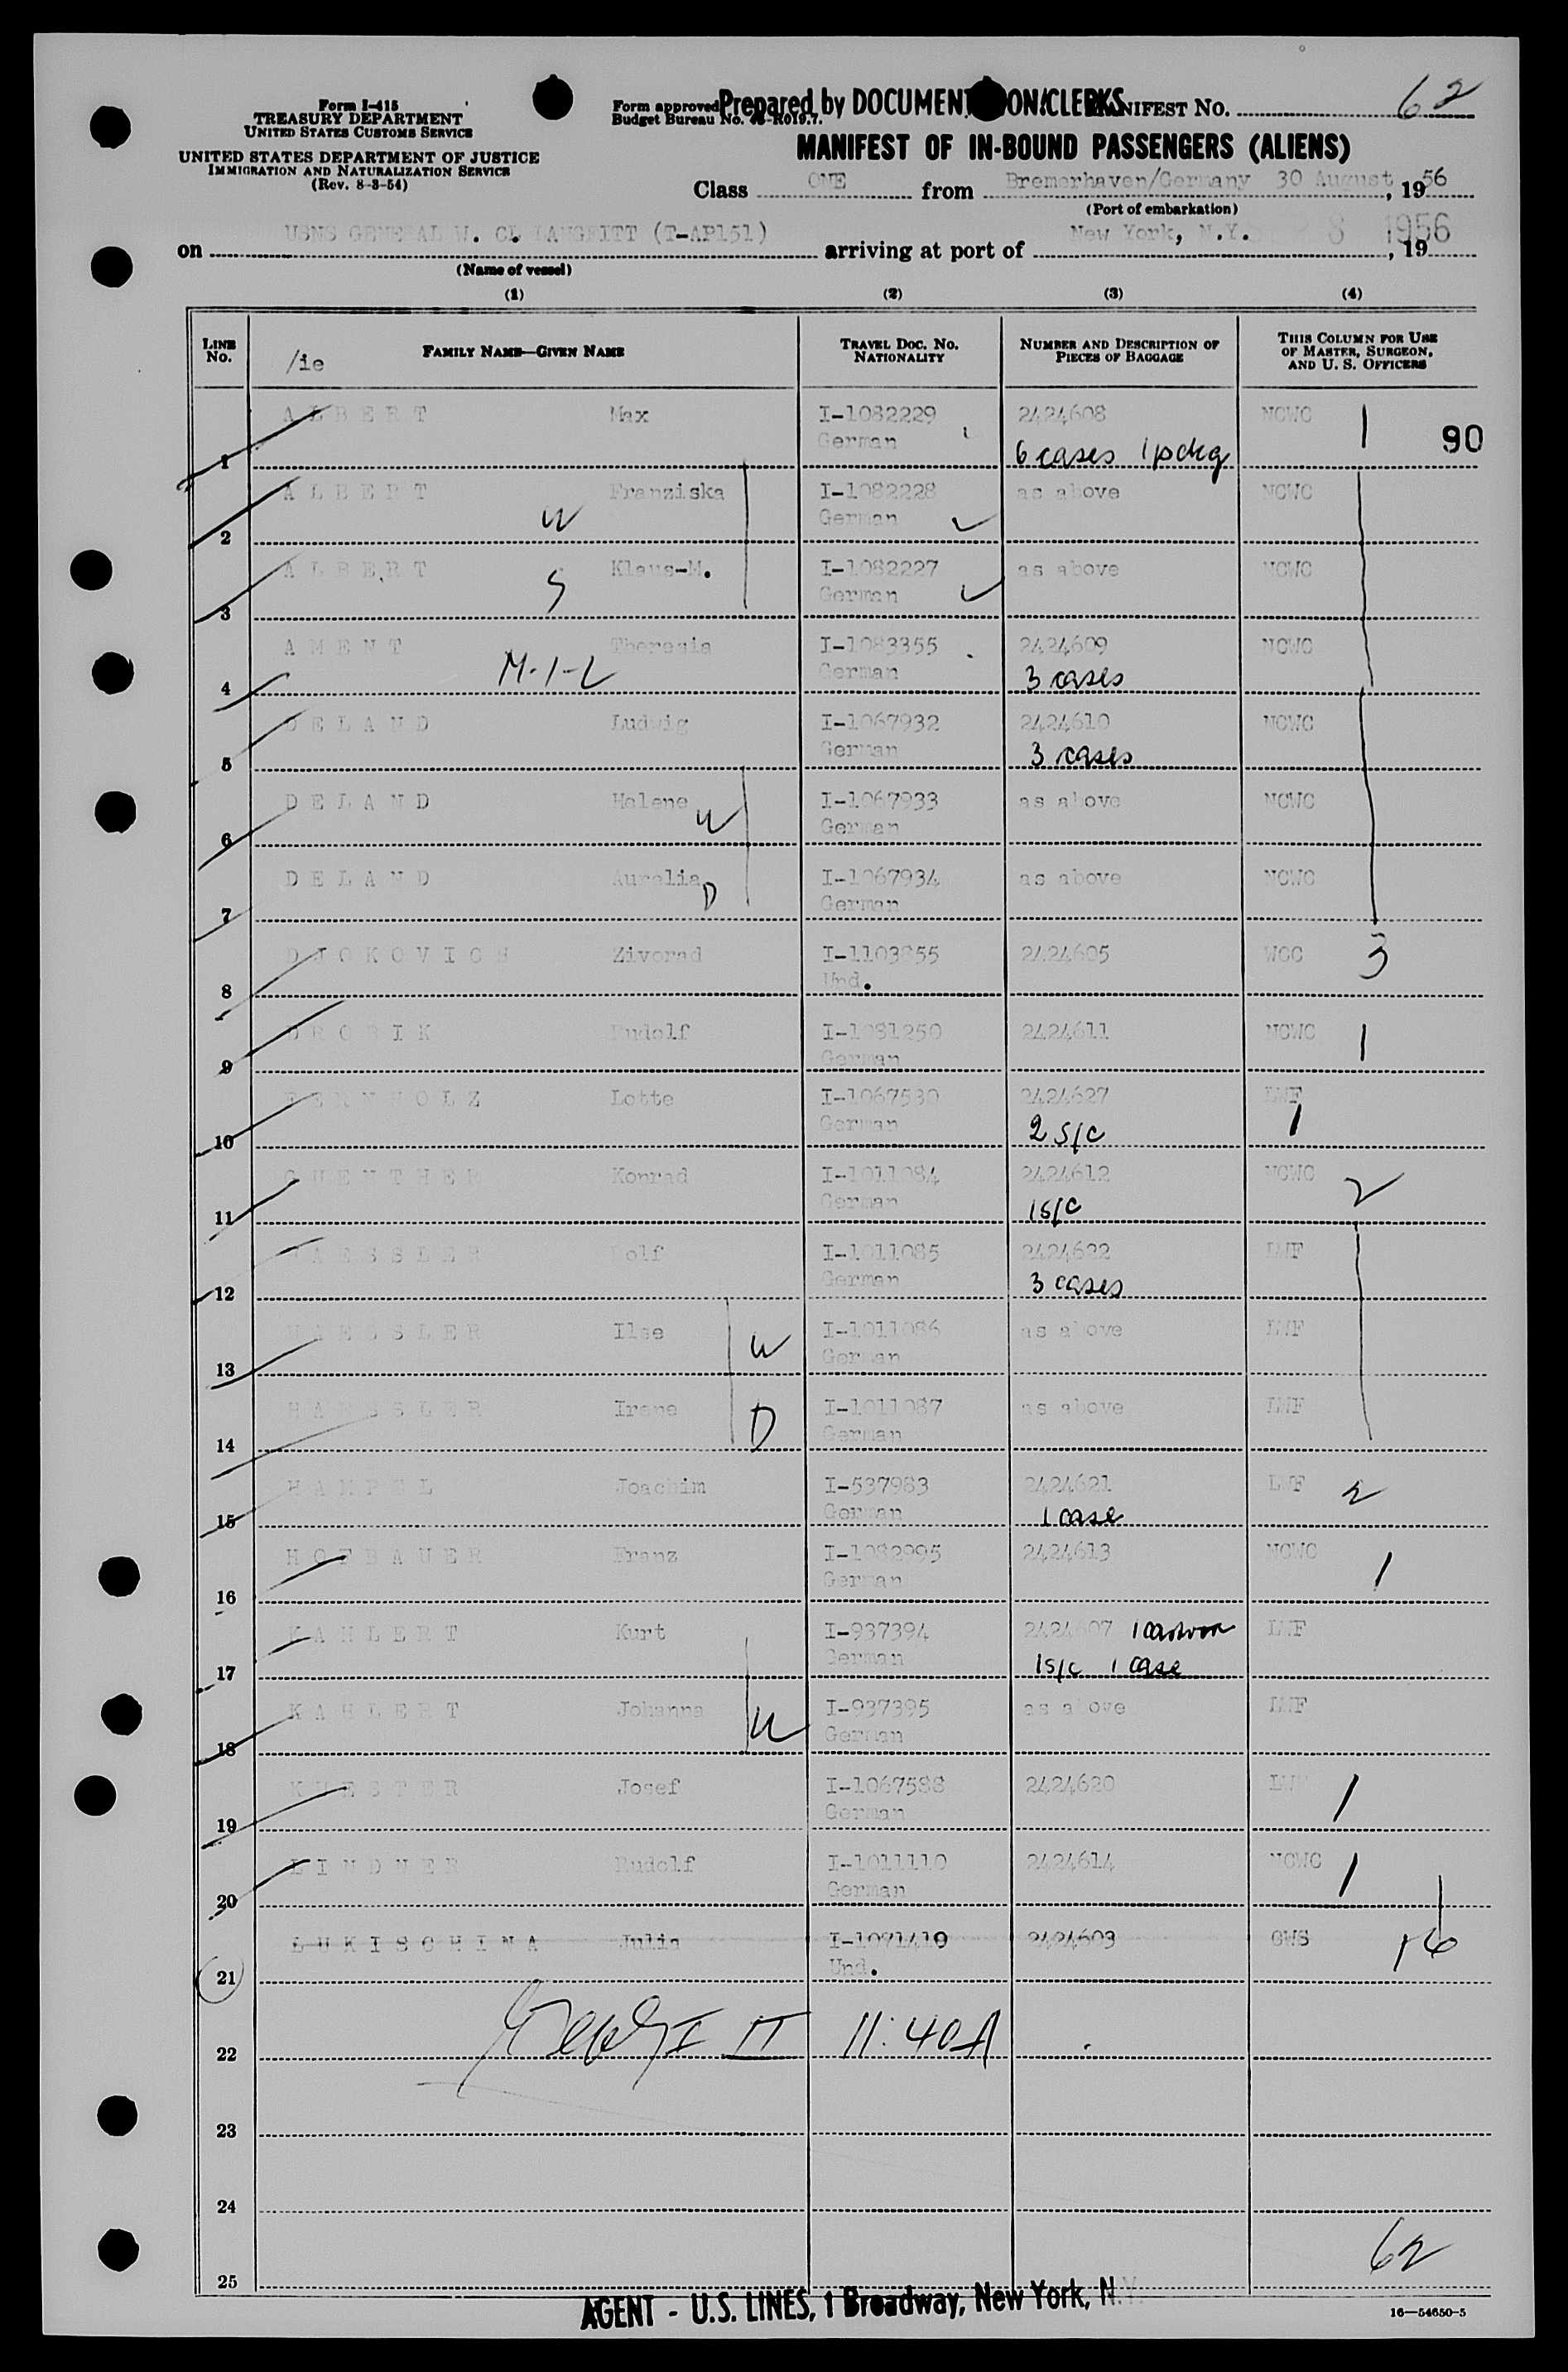 Form I-415
TREASURY DEPARTMENT
UNITED STATES CUSTOMS SERVICE
UNITED STATES DEPARTMENT OF JUSTICE
IMMIGRATION AND NATURALIZATION SERVICE
(Rev. 8-3-54)
Form approved
Budget Bureau No. 43-R019.7.
Prepared by DOCUMENT ON CLERKS
MANIFEST NO. 62
MANIFEST OF IN-BOUND PASSENGERS (ALIENS)
Class ONE from Bremerhaven/Germany 30 August, 1956
(Port of embarkation)
on USNS GENERAL W. C. LANGFITT (T-AP151) arriving at port of New York, N.Y. 8 1956, 19
(Name of vessel)
(1) (2) (3) (4)
LINE No. /ie FAMILY NAME—GIVEN NAME TRAVEL DOC. NO. NATIONALITY NUMBER AND DESCRIPTION OF PIECES OF BAGGAGE THIS COLUMN FOR USE OF MASTER, SURGEON, AND U. S. OFFICERS
1 ALBERT Max I-1082229 German 2424608 6 cases 1 pckg NCWC 1 90
2 ALBERT W Franziska I-1082228 German as above NCWC
3 ALBERT S Klaus-M. I-1082227 German as above NCWC
4 AMENT M-I-L Theresia I-1083355 German 2424609 3 cases NCWC
5 DELAND Ludwig I-1067932 German 2424610 3 cases NCWC
6 DELAND Helene W I-1067933 German as above NCWC
7 DELAND Aurelia D I-1067934 German as above NCWC
8 DJOKOVICH Zivorad I-1103855 Und. 2424605 WCC 3
9 Rudolf I-1081250 German 2424611 NCWC 1
10 Lotte I-1067530 German 2424627 2 S/C LWF 1
11 GUENTHER Konrad I-1011084 German 2424612 1 S/C NCWC 2
12 HAESSLER Rolf I-1011085 German 2424622 3 cases LWF
13 HAESSLER Ilse W I-1011086 German as above LWF
14 HAESSLER Irene D I-1011087 German as above LWF
15 HAMPEL Joachim I-537983 German 2424621 1 case LWF 2
16 HOFBAUER Franz I-1082995 German 2424613 NCWC 1
17 KAHLERT Kurt I-937394 German 2424607 1 carton 1 S/C 1 case LWF
18 KAHLERT Johanna W I-937395 German as above LWF
19 KUESTER Josef I-1067588 German 2424620 LWF 1
20 LINDNER Rudolf I-1011110 German 2424614 NCWC 1
21 LUKISCHINA Julia I-1071419 Und. 2424603 CWS 16
22 II 11:40A
23
24
25 62
AGENT - U.S. LINES, 1 Broadway, New York, N.Y.
16—54650-5